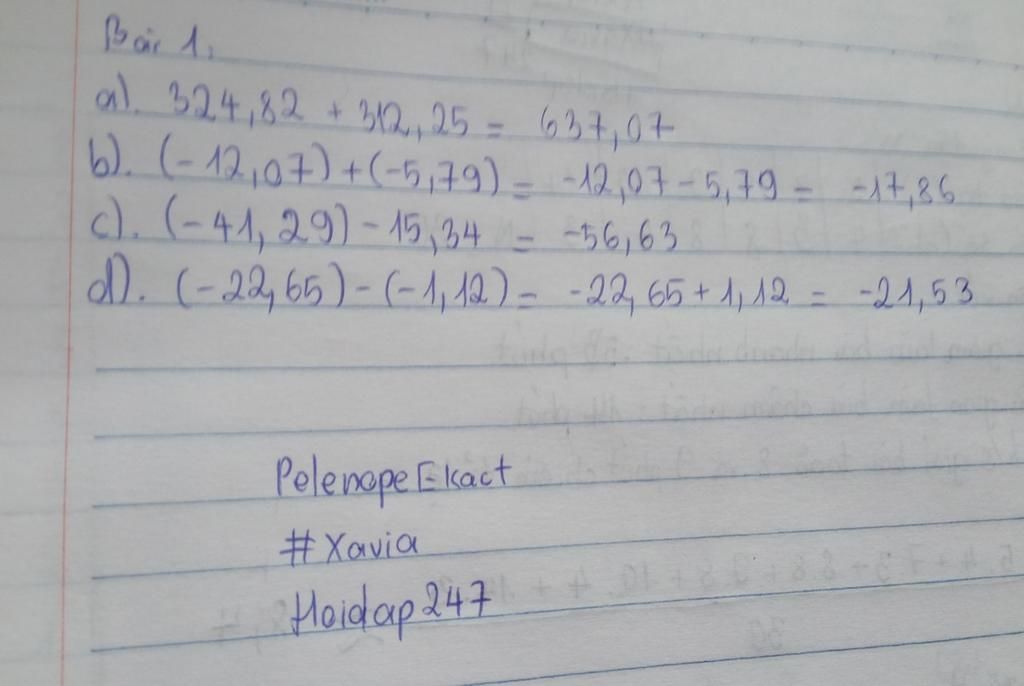 Bài 1.
a). 324,82 + 312,25 = 637,07
b). (-12,07) + (-5,79) = -12,07 - 5,79 = -17,86
c). (-41,29) - 15,34 = -56,63
d). (-22,65) - (-1,12) = -22,65 + 1,12 = -21,53
PelenopeEkact
#Xavia
Hoidap247